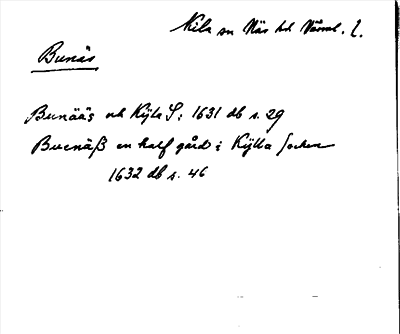 Kila sn Näs hd Värml. l.
Bunäs
Bunääs och Kÿla S: 1631 db s. 29
Bucnäß en half gård i Kÿlla Sochen
1632 db s. 46